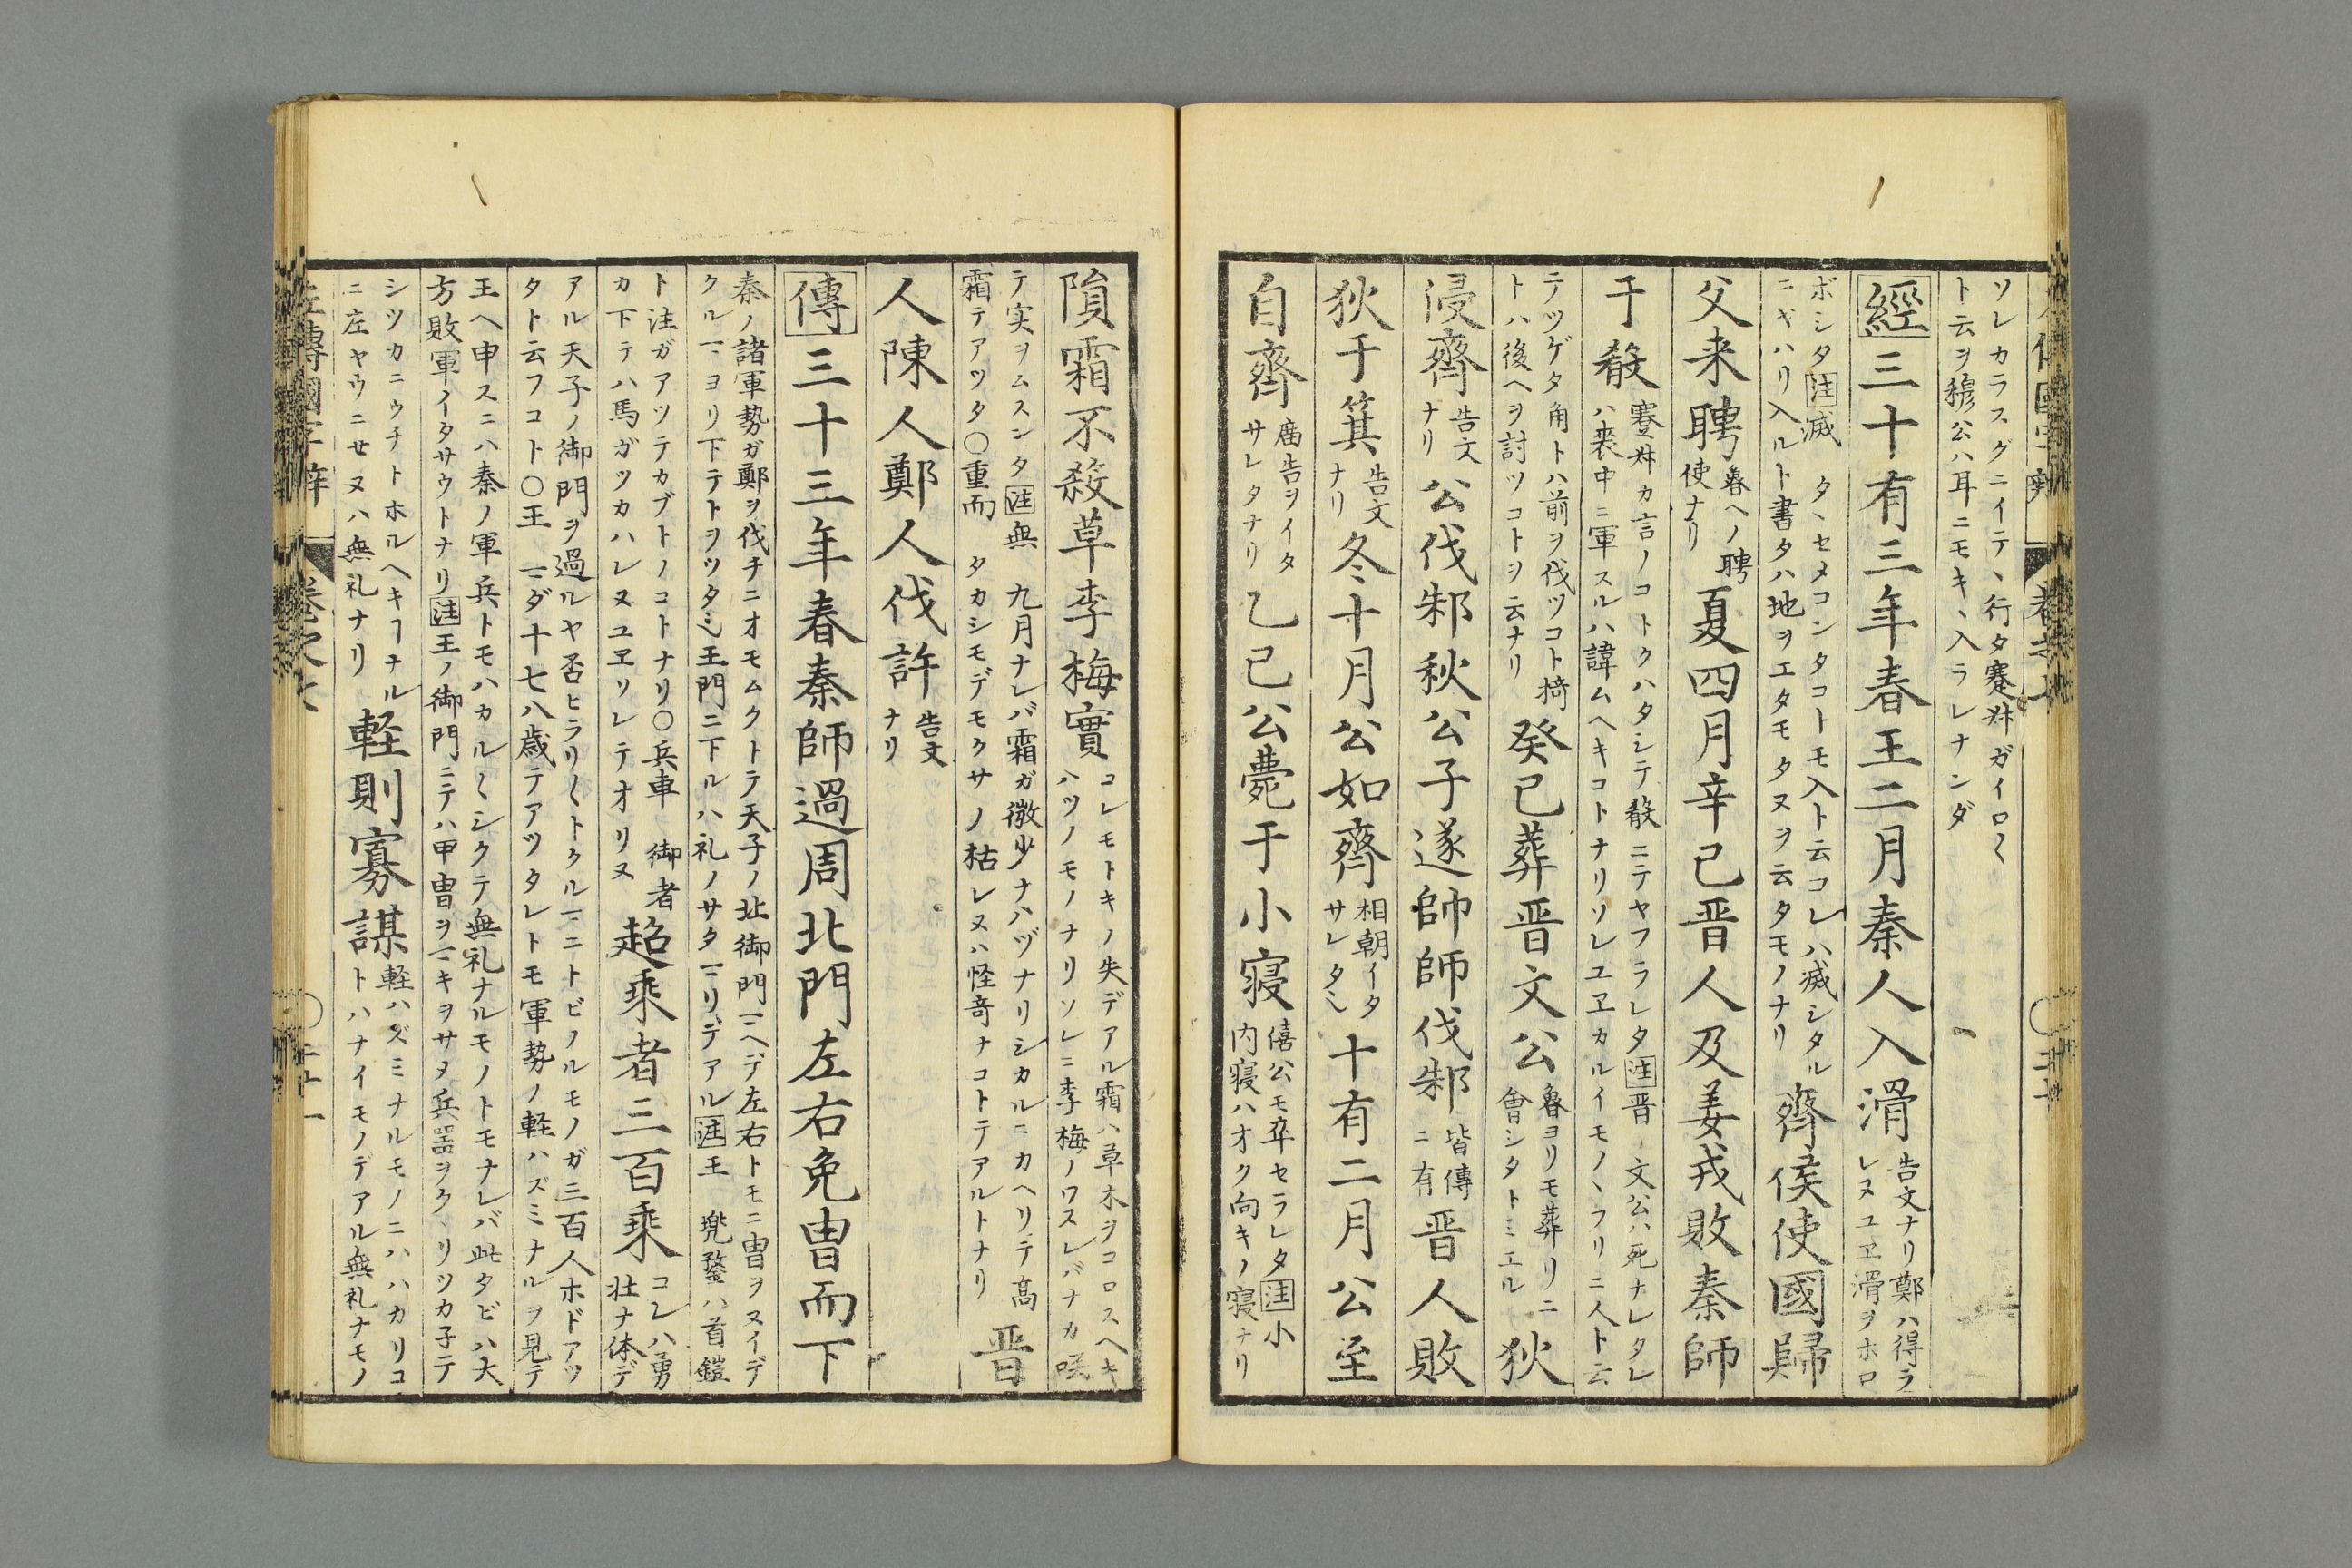 ソレカラスグニイテ、行タ蹇叔ガイロ〱
ト云ヲ穆公ハ耳ニモキ、入ラレナンダ
經三十有三年春王二月秦人入滑
告文ナリ鄭ハ得ラ
レヌユヱ滑ヲホロ
ボシタ注滅　タヽセメコンタコトモ入ト云コレハ滅シタル
ニギハリ入ルト書タハ地ヲエタモタヌヲ云タモノナリ
齊侯使國歸
父来聘
魯ヘノ聘
使ナリ
夏四月辛巳晋人及姜戎敗秦師
于殽
蹇叔カ言ノコトクハタシテ殽ニテヤフラレタ注晋　文公ハ死ナレタレ
ハ喪中ニ軍スルハ諱ムヘキコトナリソレユヱカルイモノヽフリニ人ト云
テツゲタ角トハ前ヲ伐ツコト掎
トハ後ヘヲ討ツコトヲ云ナリ
癸巳葬晋文公
魯ヨリモ葬リニ
會シタトミエル
狄
侵齊
告文
ナリ
公伐邾秋公子遂帥師伐邾
皆傳
ニ有
晋人敗
狄于箕
告文
ナリ
冬十月公如齊
相朝イタ
サレタ
十有二月公至
自齊
廟告ヲイタ
サレタナリ
乙巳公薨于小寝
僖公モ卒セラレタ注小
内寝ハオク向キノ寝ナリ
隕霜不殺草李梅實
コレモトキノ失デアル霜ハ草木ヲコロスヘキ
ハツノモノナリソレニ李梅ノワスレバナカ咲
テ実ヲムスンタ注無　九月ナレバ霜ガ微少ナハヅナリシカルニカヘリテ高
霜テアツタ〇重而　タカシモデモクサノ枯レヌハ怪竒ナコトテアルトナリ
晋
人陳人鄭人伐許
告文
ナリ
傳三十三年春秦師過周北門左右免冑而下
秦ノ諸軍勢ガ鄭ヲ伐チニオモムクトテ天子ノ北御門ニヘデ左右トモニ冑ヲヌイデ
クルヨリ下テトヲツタ王門ニ下ルハ礼ノサタリデアル注王　兜鍪ハ首鎧
ト注ガアツテカブトノコトナリ〇兵車　御者
カ下テハ馬ガツカハレヌユヱソレテオリヌ
超乘者三百乘
コレハ勇
壮ナ体デ
アル天子ノ御門ヲ過ルヤ否ヒラリ〱トクルニトビノルモノガ三百人ホドアツ
タト云フコト〇王　ダ十七八歳テアツタレトモ軍勢ノ軽ハズミナルヲ見テ
王ヘ申スニハ秦ノ軍兵トモハカル〱シクテ無礼ナルモノトモナレバ此タビハ大
方敗軍イタサウトナリ注王ノ御門ニテハ甲冑ヲキヲサメ兵噐ヲクヽリツカ子テ
シツカニウチトホルヘキナル
ニ左ヤウニセヌハ無礼ナリ
軽則寡謀
軽ハズミナルモノニハハカリコ
トハナイモノデアル無礼ナモノ
左傳國字辯　卷之七